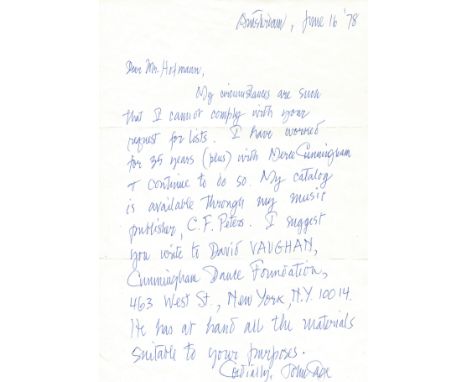 Amsterdam, June 16 '78
Dear Mr. Hofmann,
My circumstances are such
that I cannot comply with your
request for lists. I have worked
for 35 years (plus) with Merce Cunningham
& continue to do so. My catalog
is available through my music
publisher, C.F. Peters. I suggest
you write to David VAUGHAN,
Cunningham Dance Foundation,
463 West St., New York, N.Y. 10014.
He has at hand all the materials
suitable to your purposes.
Cordially, John Cage